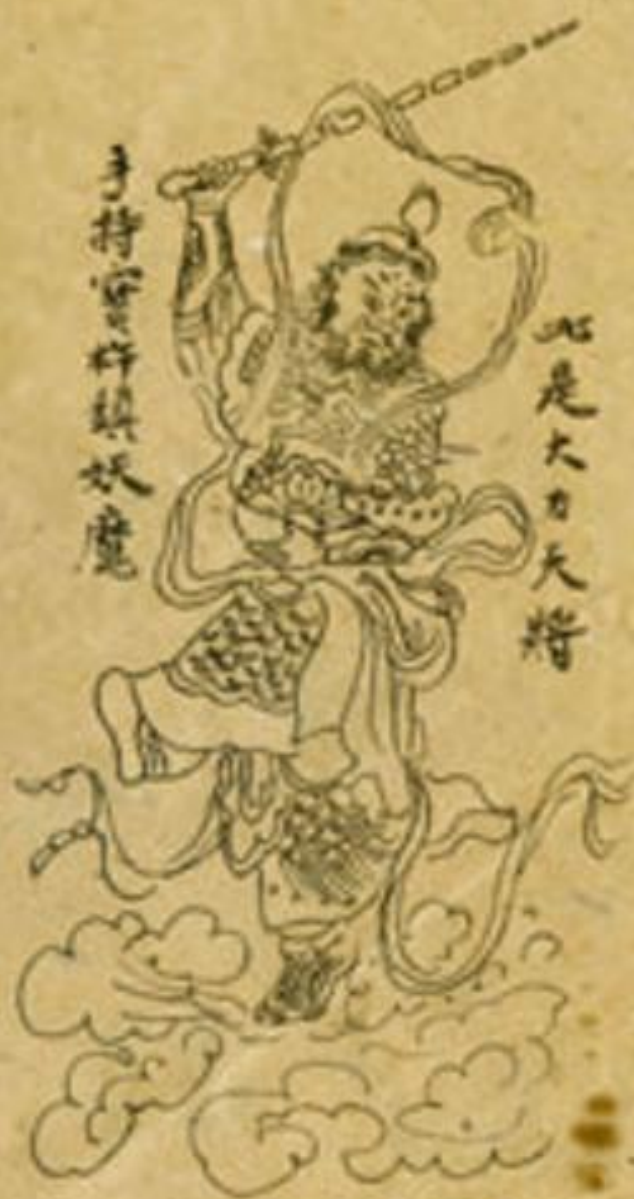 此是大力天将
手持寶杵鎮妖魔